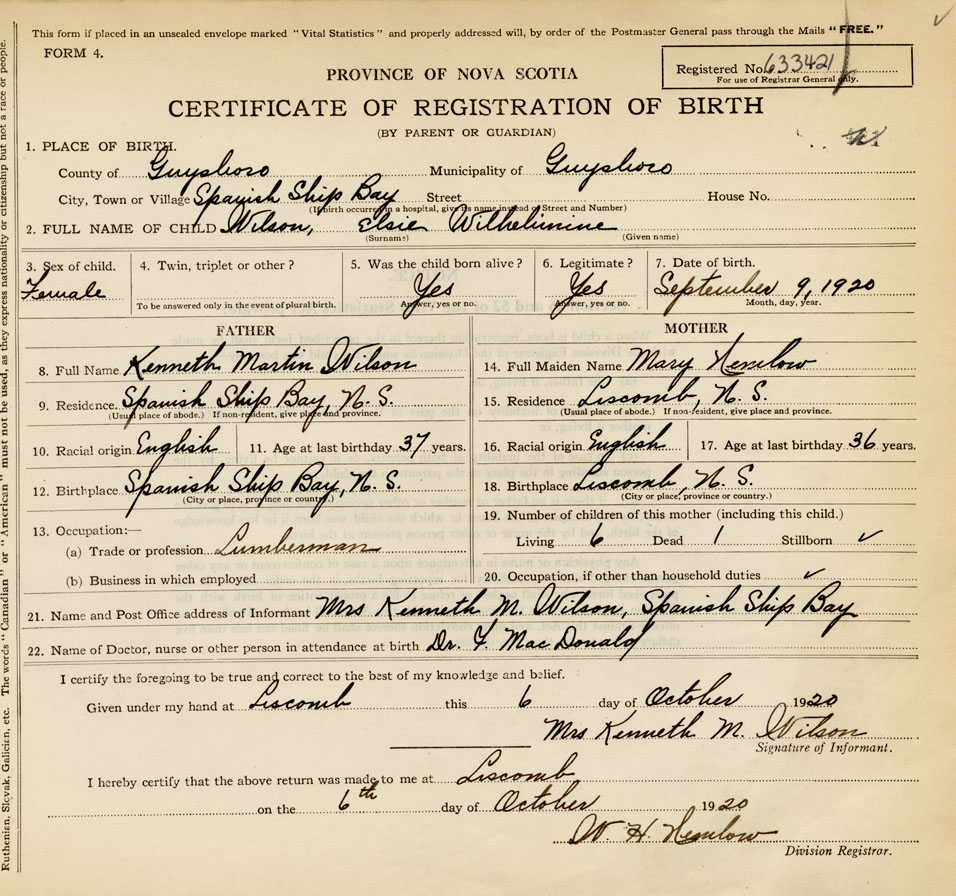 This form if placed in an unsealed envelope marked "Vital Statistics" and properly addressed will, by order of the Postmaster General pass through the Mails "FREE."
FORM 4.
Registered No. 633421
For use of Registrar General only.
PROVINCE OF NOVA SCOTIA
CERTIFICATE OF REGISTRATION OF BIRTH
(BY PARENT OR GUARDIAN)
1. PLACE OF BIRTH.
County of Guysboro Municipality of Guysboro
City, Town or Village Spanish Ship Bay Street House No.
(If birth occurred in a hospital, give its name instead of Street and Number)
2. FULL NAME OF CHILD Wilson, Elsie Wilhelmine
(Surname) (Given name)
3. Sex of child. 4. Twin, triplet or other? 5. Was the child born alive? 6. Legitimate? 7. Date of birth.
Female Yes Yes September 9, 1920
To be answered only in the event of plural birth. Answer, yes or no. Answer, yes or no. Month, day, year.
FATHER
8. Full Name Kenneth Martin Wilson
9. Residence Spanish Ship Bay, N. S.
(Usual place of abode.) If non-resident, give place and province.
10. Racial origin English 11. Age at last birthday 37 years.
12. Birthplace Spanish Ship Bay, N. S.
(City or place, province or country.)
13. Occupation:—
(a) Trade or profession Lumberman
(b) Business in which employed
MOTHER
14. Full Maiden Name Mary Hemlow
15. Residence Liscomb, N. S.
(Usual place of abode.) If non-resident, give place and province.
16. Racial origin English 17. Age at last birthday 36 years.
18. Birthplace Liscomb, N. S.
(City or place, province or country.)
19. Number of children of this mother (including this child.)
Living 6 Dead 1 Stillborn ✓
20. Occupation, if other than household duties ✓
21. Name and Post Office address of Informant Mrs Kenneth M. Wilson, Spanish Ship Bay
22. Name of Doctor, nurse or other person in attendance at birth Dr. F. MacDonald
I certify the foregoing to be true and correct to the best of my knowledge and belief.
Given under my hand at Liscomb this 6 day of October 1920
Mrs Kenneth M. Wilson
Signature of Informant.
I hereby certify that the above return was made to me at Liscomb
on the 6th day of October 1920
W. H. Hemlow
Division Registrar.
Ruthenian, Slovak, Galician, etc. The words "Canadian" or "American" must not be used, as they express nationality or citizenship but not a race or people.